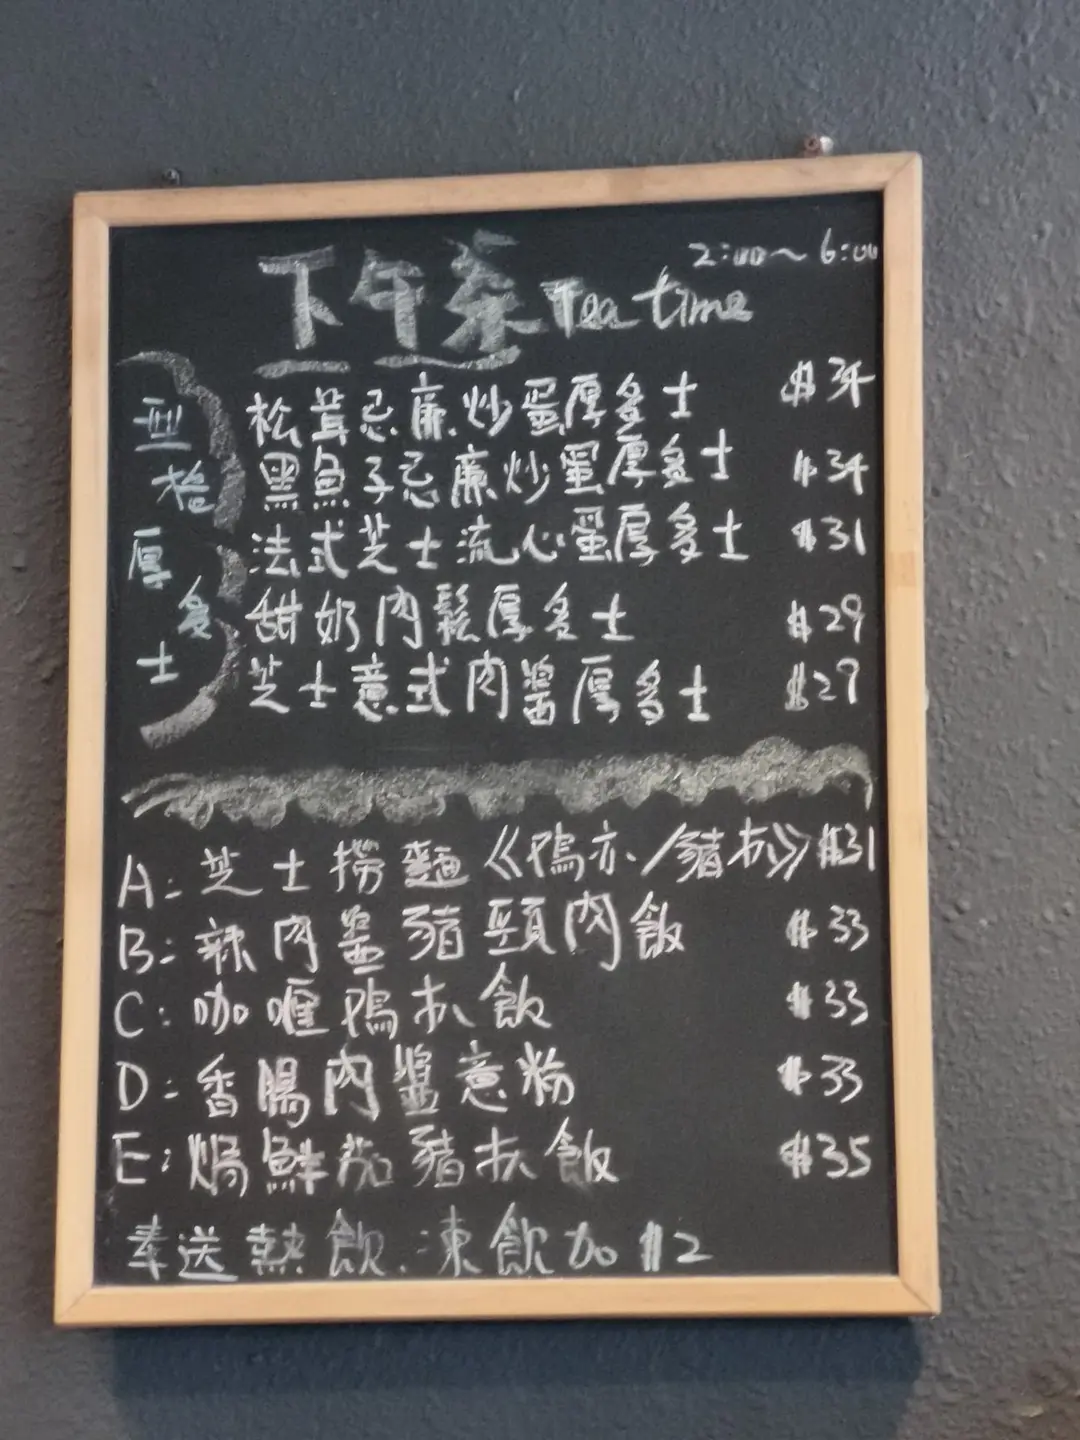 2:00~6:00
下午茶 Tea time
型格厚多士
松茸忌廉炒蛋厚多士 $34
黑魚子忌廉炒蛋厚多士 $34
法式芝士流心蛋厚多士 $31
甜奶肉鬆厚多士 $29
芝士意式肉醬厚多士 $29
A: 芝士撈麵《鸡扒/豬扒》 $31
B: 辣肉醬豬頸肉飯 $33
C: 咖喱鸡扒飯 $33
D: 香腸肉醬意粉 $33
E: 焗鮮茄豬扒飯 $35
奉送熱飲.凍飲加$2